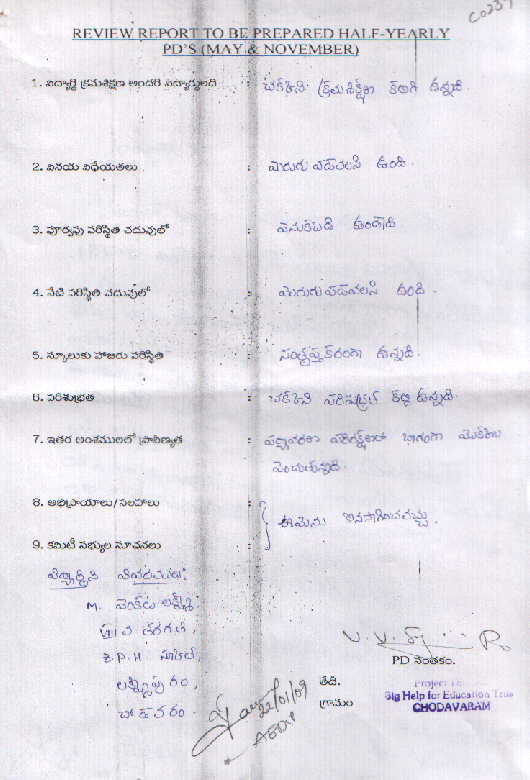 C0237
REVIEW REPORT TO BE PREPARED HALF-YEARLY
PD'S (MAY & NOVEMBER)
1. విద్యార్థి క్రమశిక్షణ అందరి విద్యార్థులది : చక్కని క్రమశిక్షణ కలిగి ఉన్నది.
2. వినయ విధేయతలు : మెరుగు పడవలసి ఉంది.
3. పూర్వపు పరిస్థితి చదువులో : వెనుకబడి ఉండేది
4. నేటి పరిస్థితి చదువులో : మెరుగు పడవలసి ఉంది.
5. స్కూలుకు హాజరు పరిస్థితి : సంతృప్తికరంగా ఉన్నది.
6. పరిశుభ్రత : చక్కని పరిశుభ్రత కల్గి ఉన్నది.
7. ఇతర అంశములలో ప్రావీణ్యత : పర్యావరణ పరిరక్షణలో భాగంగా మొక్కలు
పెంచుతున్నది.
8. అభిప్రాయాలు/సలహాలు :
ఈమెను కొనసాగించవచ్చు.
9. కమిటీ సభ్యుల సూచనలు :
విద్యార్థిని వివరములు:
M. వెంకట లక్ష్మి
తరగతి,
Z.P.H. స్కూల్,
లక్ష్మీపురం,
చోడవరం.
22/01/09
PD సంతకం.
తేది.
గ్రామం
Project
Big Help for Education Trust
CHODAVARAM